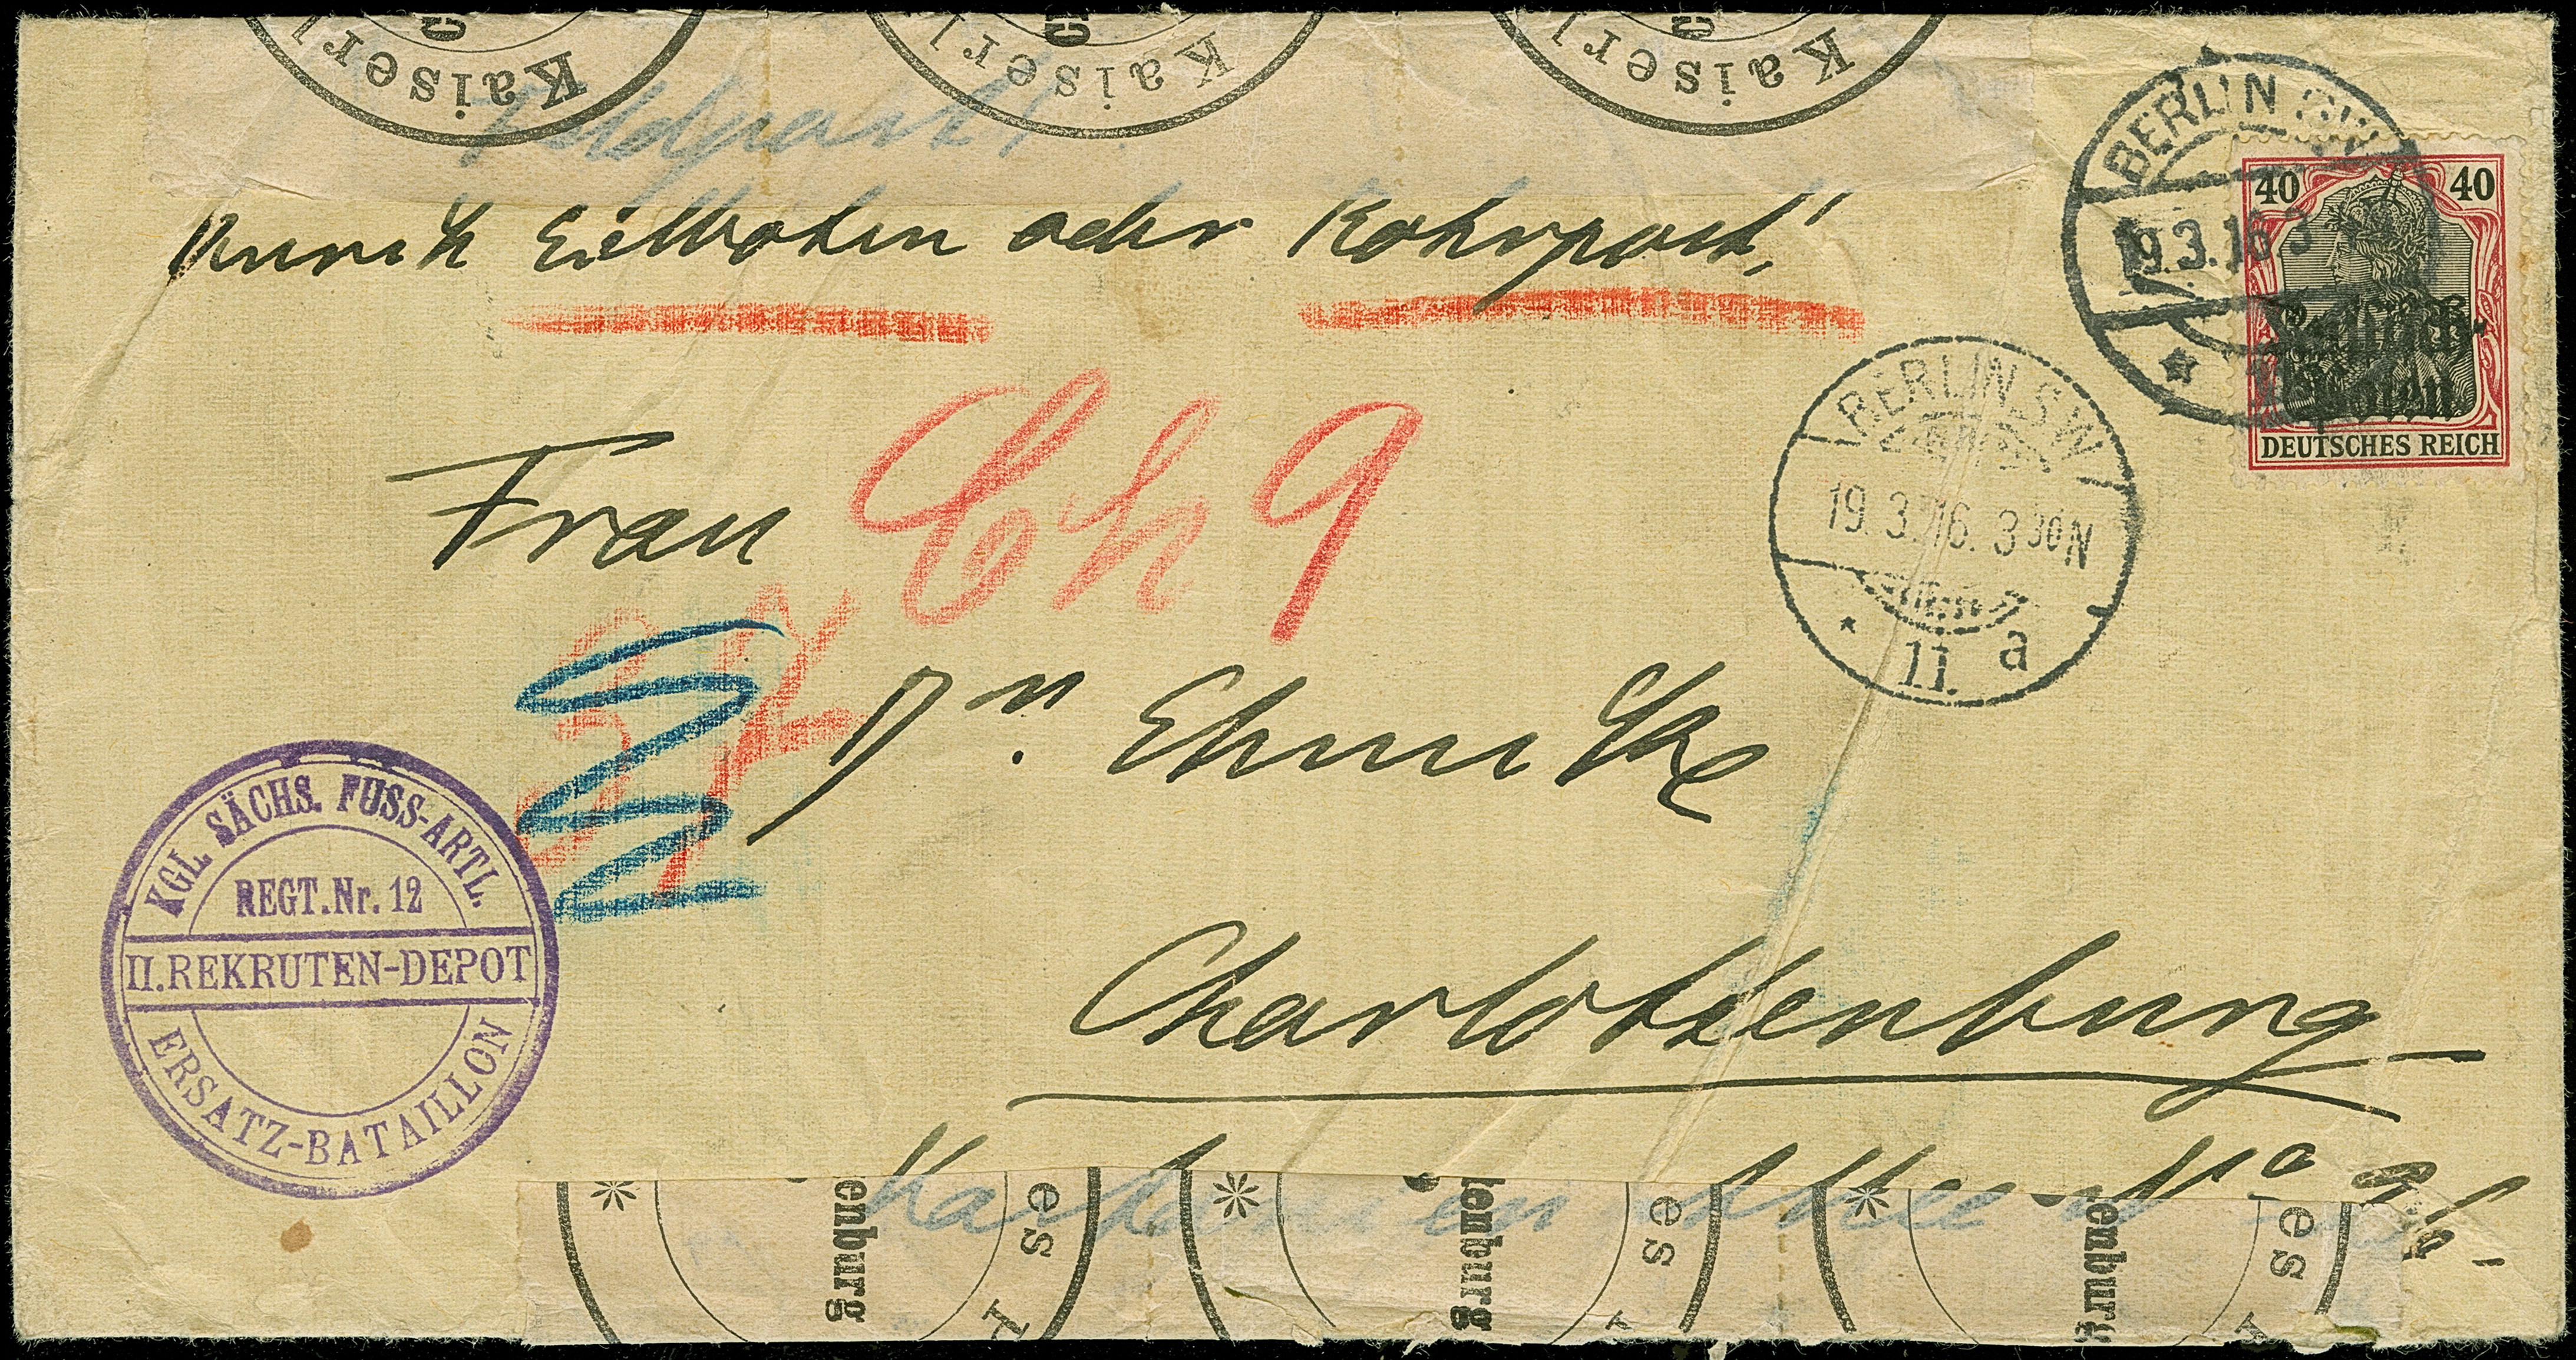 Kaiserl
Kaiserl
Kaiserl
Feldpost!
durch Eilboten oder Rohrpost!
BERLIN SW
19.3.16.3
40 40
Russisch-
Polen
DEUTSCHES REICH
BERLIN.SW
19.3.16.3 30N
* 11. a
Ch 9
Frau
Dr. Ehmcke
Charlottenburg
KGL. SÄCHS. FUSS-ARTL.
REGT.Nr. 12
II.REKRUTEN-DEPOT
ERSATZ-BATAILLON
Kastanien Allee No
* enburg es
* lenburg es
* enburg es